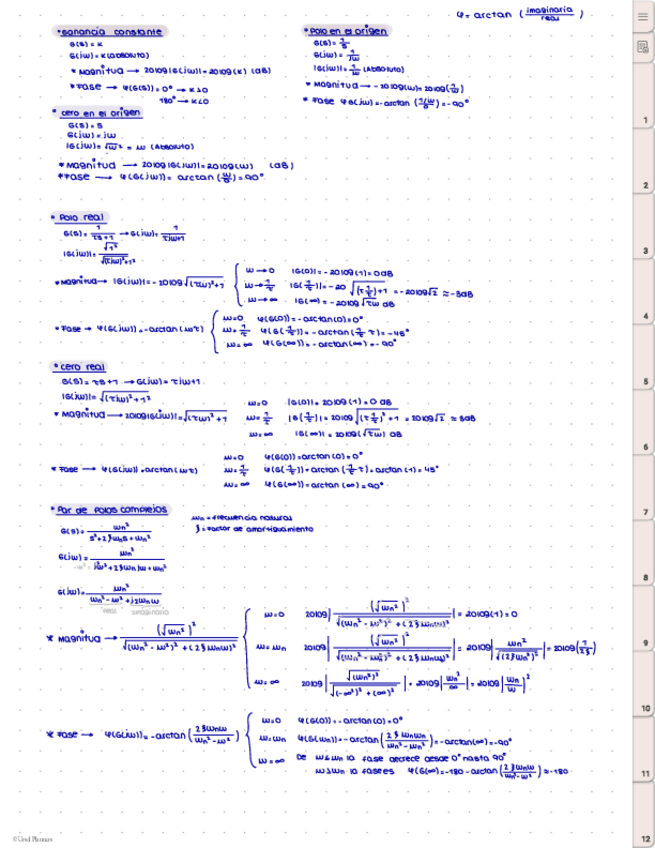 φ = arctan (imaginaria/real)
• Ganancia constante
G(s) = K
G(jω) = K (Absoluto)
* Magnitud → 20log|G(jω)| = 20log(K) (dB)
* Fase → φ(G(s)) = 0° → K>0
180° → K<0
• Polo en el origen
G(s) = 1/s
G(jω) = 1/jω
|G(jω)| = 1/ω (Absoluto)
* Magnitud → -20log(ω) = 20log(1/ω)
* Fase φG(jω) = -arctan (1/ω/0) = -90°
• cero en el origen
G(s) = s
G(jω) = jω
|G(jω)| = √ω² = ω (Absoluto)
* Magnitud → 20log|G(jω)| = 20log(ω) (dB)
* Fase → φ(G(jω)) = arctan(ω/0) = 90°
• Polo real
G(s) = 1/τs+1 → G(jω) = 1/τjω+1
|G(jω)| = √1²/√(τω)²+1²
* Magnitud → |G(jω)| = -20log√(τω)²+1
ω→0 |G(0)| = -20log(1) = 0dB
ω→1/τ |G(1/τ)| = -20 √(τ1/τ)+1 = -20log√2 ≈ -3dB
ω→∞ |G(∞)| = -20log√τω dB
* Fase → φ(G(jω)) = -arctan(ωτ)
ω=0 φ(G(0)) = -arctan(0) = 0°
ω=1/τ φ(G(1/τ)) = -arctan(1/τ τ) = -45°
ω=∞ φ(G(∞)) = -arctan(∞) = -90°
• cero real
G(s) = τs+1 → G(jω) = τjω+1
|G(jω)| = √(τω)²+1²
* Magnitud → 20log|G(jω)| = √(τω)²+1
ω=0 |G(0)| = 20log(1) = 0 dB
ω=1/τ |G(1/τ)| = 20log√(τ1/τ)²+1 = 20log√2 ≈ 3dB
ω=∞ |G(∞)| = 20log(√τω) dB
* Fase → φ(G(jω)) = arctan(ωτ)
ω=0 φ(G(0)) = arctan(0) = 0°
ω=1/τ φ(G(1/τ)) = arctan(1/τ τ) = arctan(1) = 45°
ω=∞ φ(G(∞)) = arctan(∞) = 90°
• Par de Polos complejos
ωn = frecuencia natural
ξ = factor de amortiguamiento
G(s) = ωn²/s²+2ξωns+ωn²
G(jω) = ωn²/jω²+2ξωnjω+ωn²
G(jω) = ωn²/ωn²-ω²+j2ξωnω
real imaginario
* Magnitud → (√ωn²)²/√(ωn²-ω²)²+(2ξωnω)²
ω=0 20log|(√ωn²)²/√(ωn²-ω²)²+(2ξωnω)²| = 20log(1) = 0
ω=ωn 20log|(√ωn²)²/√(ωn²-ωn²)²+(2ξωnω)²| = 20log|ωn²/√(2ξωn²)²| = 20log(1/2ξ)
ω=∞ 20log|√(ωn²)²/√(-∞²)²+(∞)²| = 20log|ωn²/∞| = 20log|ωn/ω|²
* Fase → φ(G(jω)) = -arctan(2ξωnω/ωn²-ω²)
ω=0 φ(G(0)) = -arctan(0) = 0°
ω=ωn φ(G(ωn)) = -arctan(2ξωnωn/ωn²-ωn²) = -arctan(∞) = -90°
ω=∞ De ω≤ωn la fase decrece desde 0° hasta 90°
ω≥ωn la fase es φ(G(∞)) = -180 - arctan(2ξωnω/ωn²-ω²) ≈ -180
1
2
3
4
5
6
7
8
9
10
11
12